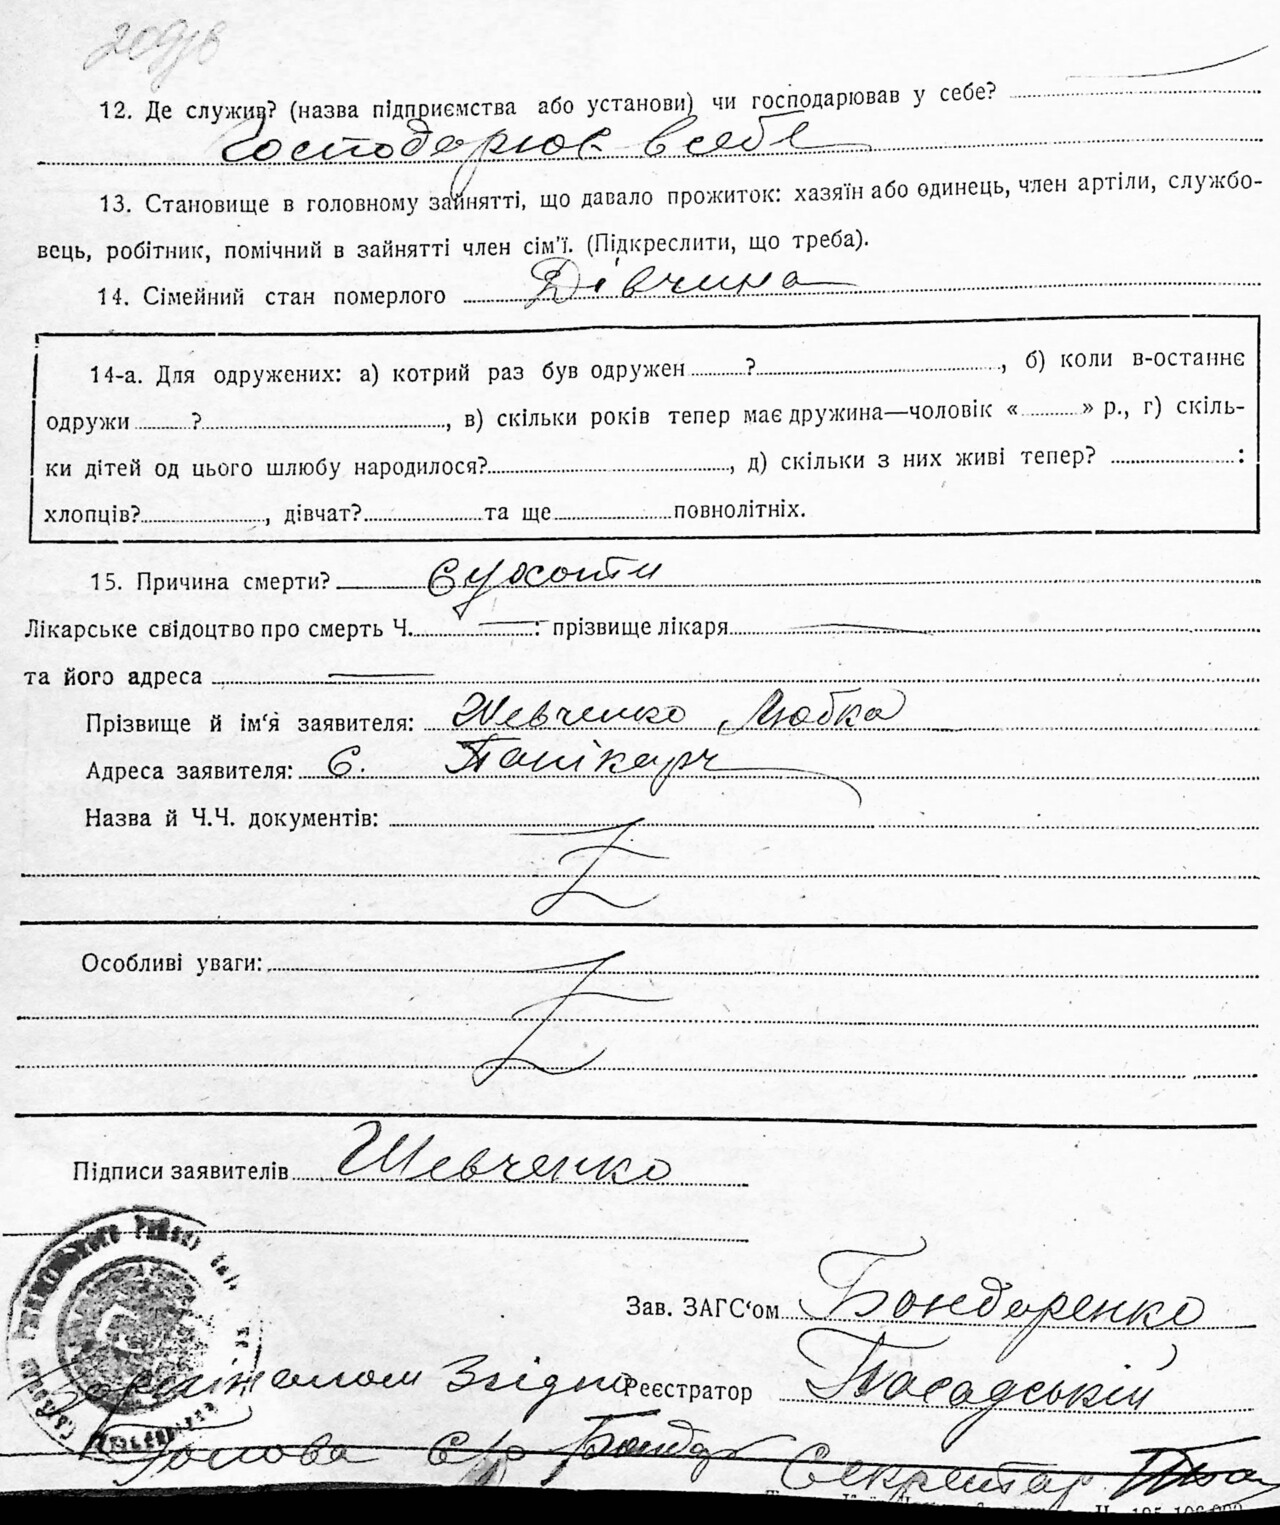 209/в
12. Де служив? (назва підприємства або установи) чи господарював у себе?
Господарює в себе
13. Становище в головному зайнятті, що давало прожиток: хазяїн або одинець, член артіли, службо-
вець, робітник, помічний в зайнятті член сім'ї. (Підкреслити, що треба).
14. Сімейний стан померлого Дівчина
14-а. Для одружених: а) котрий раз був одружен ?, б) коли в-останнє
одружи ?, в) скільки років тепер має дружина—чоловік « » р., г) скіль-
ки дітей од цього шлюбу народилося?, д) скільки з них живі тепер? :
хлопців?, дівчат? та ще повнолітніх.
15. Причина смерти?
Лікарське свідоцтво про смерть Ч. — : прізвище лікаря —
та його адреса —
Прізвище й ім‘я заявителя: Шевченко Любка
Адреса заявителя: С. Панікарч
Назва й Ч.Ч. документів:
Особливі уваги:
Підписи заявителів Шевченко
Зав. ЗАГС‘ом Бондаренко
оригіналом Згідно Реєстратор Посадській
Голова с/р Бонда Секретар